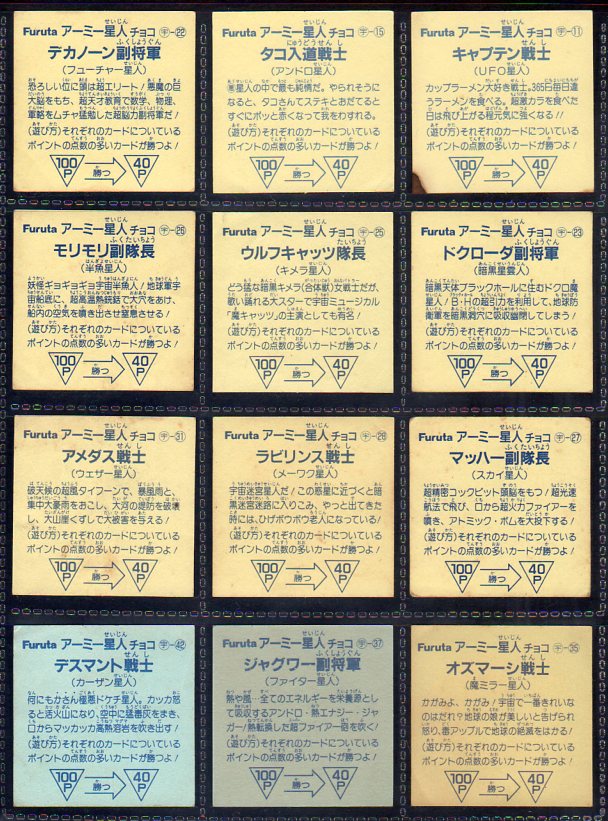 Furuta アーミー星人チョコ 宇-22
デカノーン副将軍
(フューチャー星人)
恐ろしい位に頭は超エリート!悪魔の巨
大脳をもち、超天才教育で数学、物理、
軍略をムチャ猛勉した超脳力副将軍だ!
(遊び方)それぞれのカードについている
ポイントの点数の多いカードが勝つよ!
100P 勝つ 40P
Furuta アーミー星人チョコ 宇-15
タコ入道戦士
(アンドロ星人)
星人の中で最も純情だ。やられそうに
なると、タコさんてステキとおだてると
すぐにポッと赤くなって我をわすれる。
(遊び方)それぞれのカードについている
ポイントの点数の多いカードが勝つよ!
100P 勝つ 40P
Furuta アーミー星人チョコ 宇-11
キャプテン戦士
(UFO星人)
カップラーメン大好き戦士。365日毎日違
うラーメンを食べる。超激カラを食べた
日は飛び上がる程元気に強くなる!!
(遊び方)それぞれのカードについている
ポイントの点数の多いカードが勝つよ!
100P 勝つ 40P
Furuta アーミー星人チョコ 宇-26
モリモリ副隊長
(半魚星人)
妖怪ギョギョギョ宇宙半魚人!地球軍宇
宙船底に、超高温熱銃銛で大穴をあけ、
船内の空気を噴き出させ窒息させる!
(遊び方)それぞれのカードについている
ポイントの点数の多いカードが勝つよ!
100P 勝つ 40P
Furuta アーミー星人チョコ 宇-25
ウルフキャッツ隊長
(キメラ星人)
どう猛な暗黒キメラ(合体獣)女戦士だが、
歌い踊れる大スターで宇宙ミュージカル
「魔キャッツ」の主演としても有名!
(遊び方)それぞれのカードについている
ポイントの点数の多いカードが勝つよ!
100P 勝つ 40P
Furuta アーミー星人チョコ 宇-23
ドクローダ副将軍
(暗黒星雲人)
暗黒天体ブラックホールに住むドクロ魔
星人!B・Hの超引力を利用して、地球防
衛軍を暗黒洞穴に吸収幽閉してしまう!
(遊び方)それぞれのカードについている
ポイントの点数の多いカードが勝つよ!
100P 勝つ 40P
Furuta アーミー星人チョコ 宇-31
アメダス戦士
(ウェザー星人)
破天候の超風タイフーンで、暴風雨と、
集中大豪雨をおこし、大河の堤防を破壊
し、大山崖くずしで大被害を与える!
(遊び方)それぞれのカードについている
ポイントの点数の多いカードが勝つよ!
100P 勝つ 40P
Furuta アーミー星人チョコ 宇-28
ラビリンス戦士
(メーワク星人)
宇宙迷宮星人だ!この惑星に近づくと暗
黒迷宮迷路に入りこみ、やっと出てきた
時には、ひげボウボウ老人になっている!
(遊び方)それぞれのカードについている
ポイントの点数の多いカードが勝つよ!
100P 勝つ 40P
Furuta アーミー星人チョコ 宇-27
マッハー副隊長
(スカイ星人)
超精密コックピット頭脳をもつ!超光速
航法で飛び、口から超火力ファイアーを
噴き、アトミック・ボムを大投下する!
(遊び方)それぞれのカードについている
ポイントの点数の多いカードが勝つよ!
100P 勝つ 40P
Furuta アーミー星人チョコ 宇-42
デスマント戦士
(カーザン星人)
何にもかせん極悪ドケチ星人。カッカ怒
ると活火山になり、空中に猛毒灰をまき、
口からマッカッカ高熱溶岩を吹き出す!
(遊び方)それぞれのカードについている
ポイントの点数の多いカードが勝つよ!
100P 勝つ 40P
Furuta アーミー星人チョコ 宇-37
ジャグワー副将軍
(ファイター星人)
熱や風…全てのエネルギーを栄養源とし
て吸収するアンドロ・熱エナジー・ジャ
ガー!熱転換した超ファイアー砲を吹く!
(遊び方)それぞれのカードについている
ポイントの点数の多いカードが勝つよ!
100P 勝つ 40P
Furuta アーミー星人チョコ 宇-35
オズマーシ戦士
(魔ミラー星人)
かがみよ、かがみ!宇宙で一番きれいな
のはだれ?地球の娘が美しいと告げられ
怒り、毒アップルで地球の絶滅をはかる!
(遊び方)それぞれのカードについている
ポイントの点数の多いカードが勝つよ!
100P 勝つ 40P